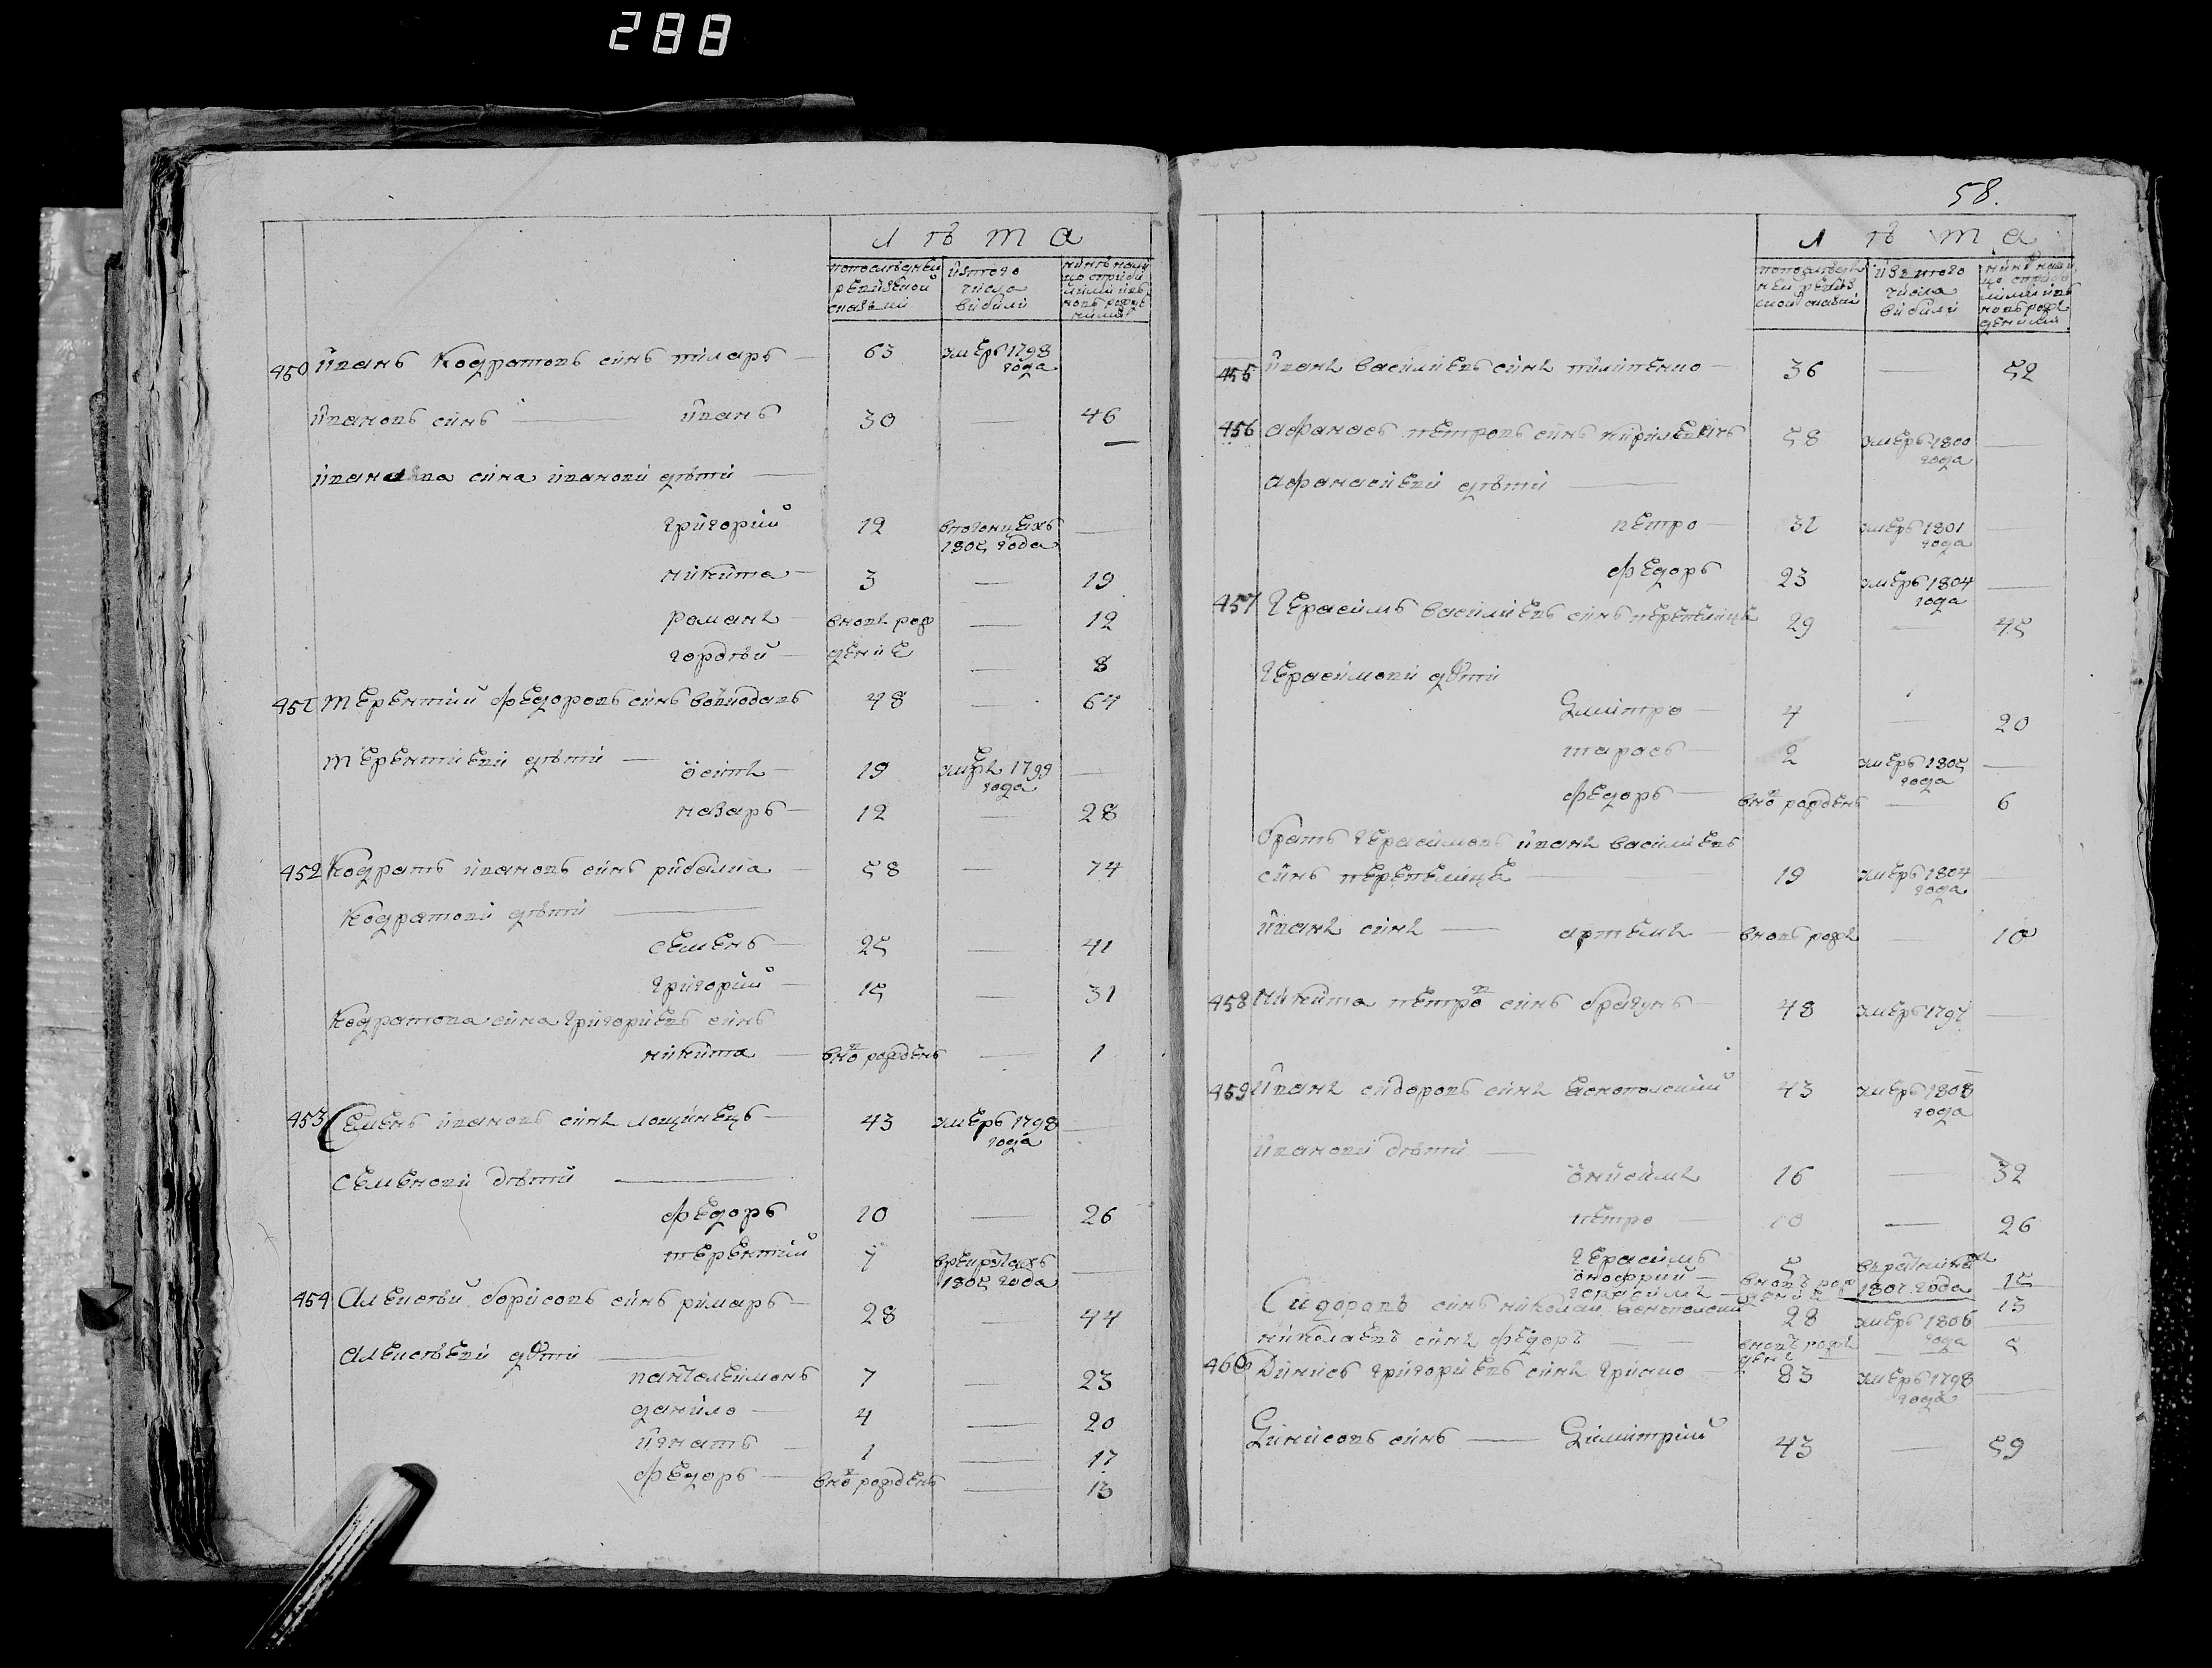 288
лѣта
попослѣдней ревизской сказки
изтого числа выбыли
450 иванъ Кодратовъ синъ тиларъ — 63 умеръ 1798 года
ивановъ синъ — иванъ 30 — 46
ивана сина иванови дѣти —
григорий 12 1805 года —
никита — 3 — 19
романъ — вновь рож — 12
гордѣй — дение — 8
451 терентий федоровъ синъ 48 — 64
терентиеви дѣти — осипъ — 19 умеръ 1799 года —
назаръ — 12 — 28
452 кодратъ ивановъ синъ рибалка — 58 — 74
кодратови дѣти —
семенъ — 25 — 41
григорий — 15 — 31
кодратова сина григориевъ синъ
никита — вно рожденъ — 1
453 Семенъ ивановъ синъ лощинецъ — 43 умеръ 1798 года —
семенови дѣти —
федоръ 10 — 26
терентий 7 врекрутахъ 1805 года —
454 Алексѣй борисовъ синъ римаръ — 28 — 44
Алексѣеви дѣти —
пантелеимонъ 7 — 23
данило — 4 — 20
игнатъ — 1 — 17
федоръ — вно рожденъ — 13
58.
лѣта
изтого числа выбыли
455 иванъ василиевъ синъ пилипенко — 36 — 52
456 афанасъ петровъ синъ кирилевичъ 58 умеръ 1800 года —
афанасиеви дѣти —
петро 31 умеръ 1801 года —
федоръ 23 умеръ 1804 года —
457 герасимъ василиевъ синъ перепелица 29 — 45
герасимови дѣти
дмитро — 4 — 20
тарасъ — 2 умеръ 1805 года —
федоръ — вно рожденъ — 6
братъ герасимовъ иванъ василиевъ
синъ перепелица — 19 умеръ 1804 года —
иванъ синъ — артемъ — вновъ рожд — 10
458 никита петро синъ брагунъ — 48 умеръ 1797 —
459 иванъ сидоровъ синъ яснополский 43 умеръ 1808 года
иванови дѣти —
онисимъ 16 — 32
петро — 10 — 26
герасимъ 5 1807 года
онофрий — вновъ рож 15
герасимъ — дение 13
Сидоровъ синъ николай яснополский 28 умеръ 1806 года
николаевъ синъ федоръ — вновъ рожд — 5
460 Динисъ григориевъ синъ гринко 83 умеръ 1798 года —
Динисовъ синъ — Димитрий 43 — 59